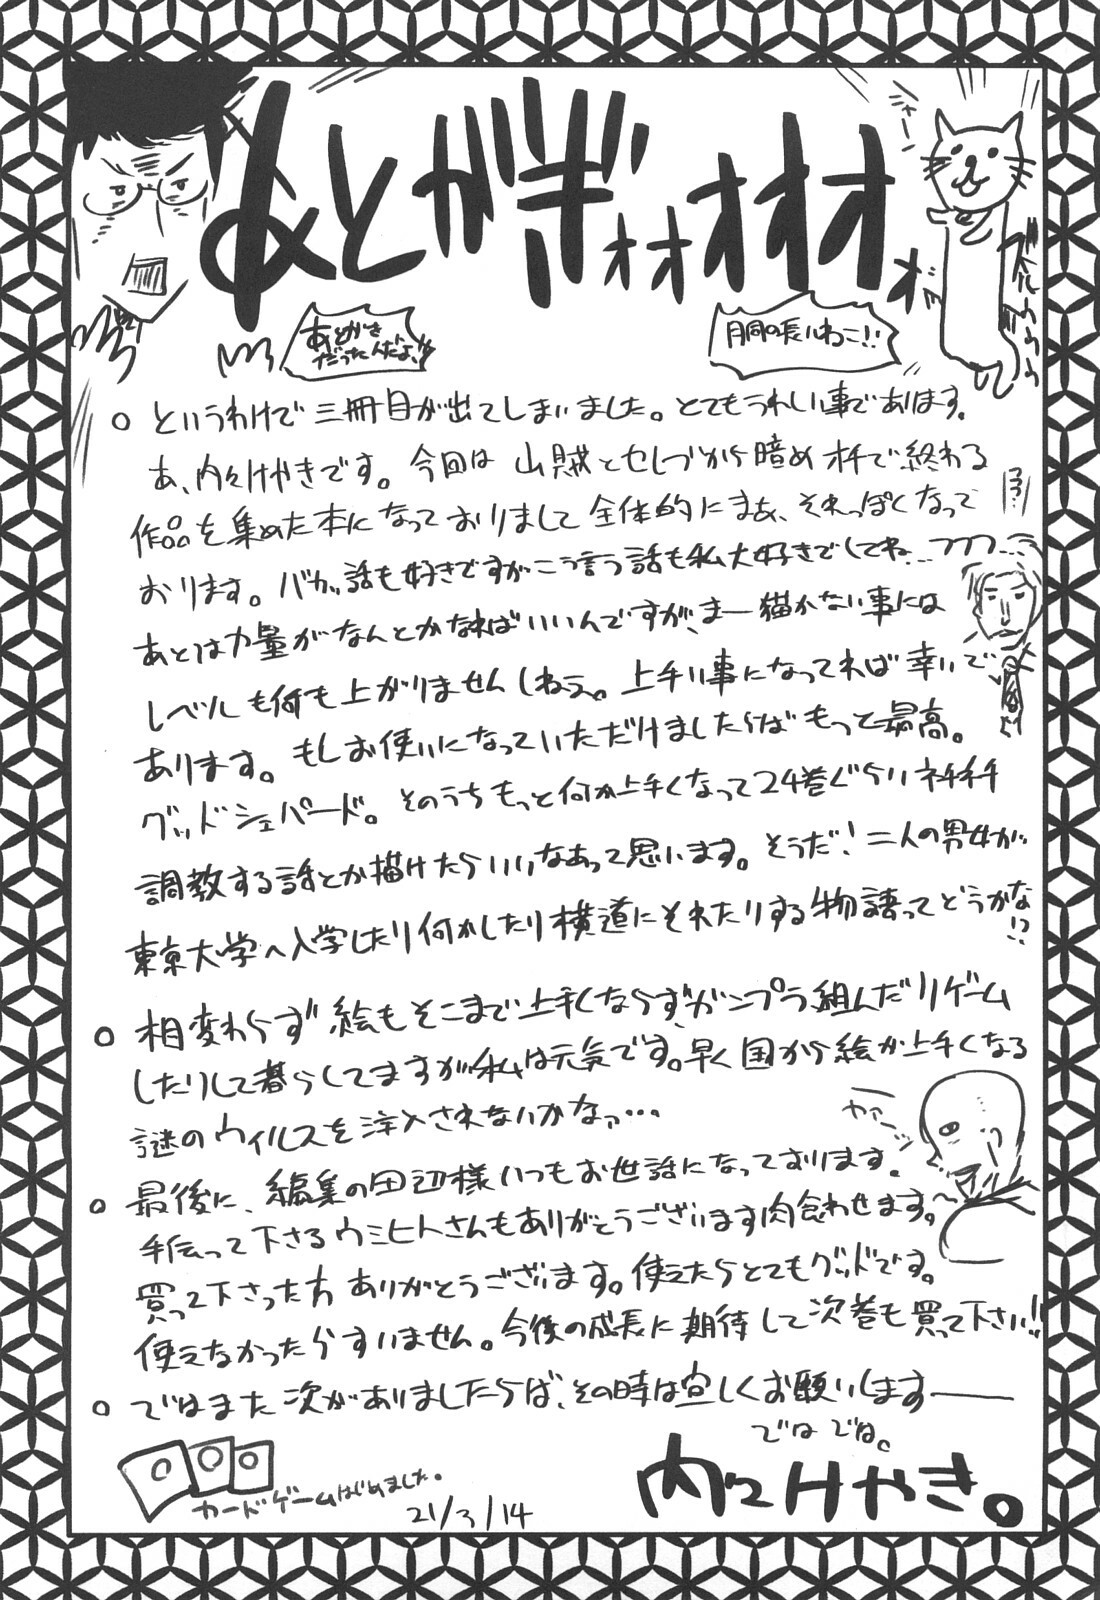 あとがきォォオオオオ
あとがき
だったんだよ!!
胴の長いねこ!!
というわけで三冊目が出てしまいました。とてもうれしい事であります。
あ、内々けやきです。今回は山賊とセレブから暗めオチで終わる
作品を集めた本になっておりまして全体的にまぁ、それっぽくなって
おります。バカな話も好きですがこう言う話も私大好きでしてね…フフフ…
あとは力量がなんとかなればいいんですが、まー描かない事には
レベルも何も上がりませんしねぇ。上手い事になってれば幸いで
あります。もしお使いになっていただけましたらばもっと最高。
グッドシェパード。そのうちもっと何か上手くなって24巻ぐらいネチネチ
調教する話とか描けたらいいなあって思います。そうだ!二人の男女が
東京大学へ入学したり何かしたり横道にそれたりする物語ってどうかな!?
相変わらず絵もそこまで上手くならず、ガンプラ組んだりゲーム
したりして暮らしてますが私は元気です。早く国から絵が上手くなる
謎のウィルスを注入されないかなっ…
最後に、編集の田辺様いつもお世話になっております。
手伝って下さるウミヒトさんもありがとうございます肉食わせます。
買って下さった方ありがとうございます。使えたらとてもグッドです。
使えなかったらすいません。今後の成長に期待して次巻も買って下さい!!
ではまた次がありましたらば、その時は宜しくお願いします――
ではでは。
内々けやき。
カードゲームはじめました。
21/3/14